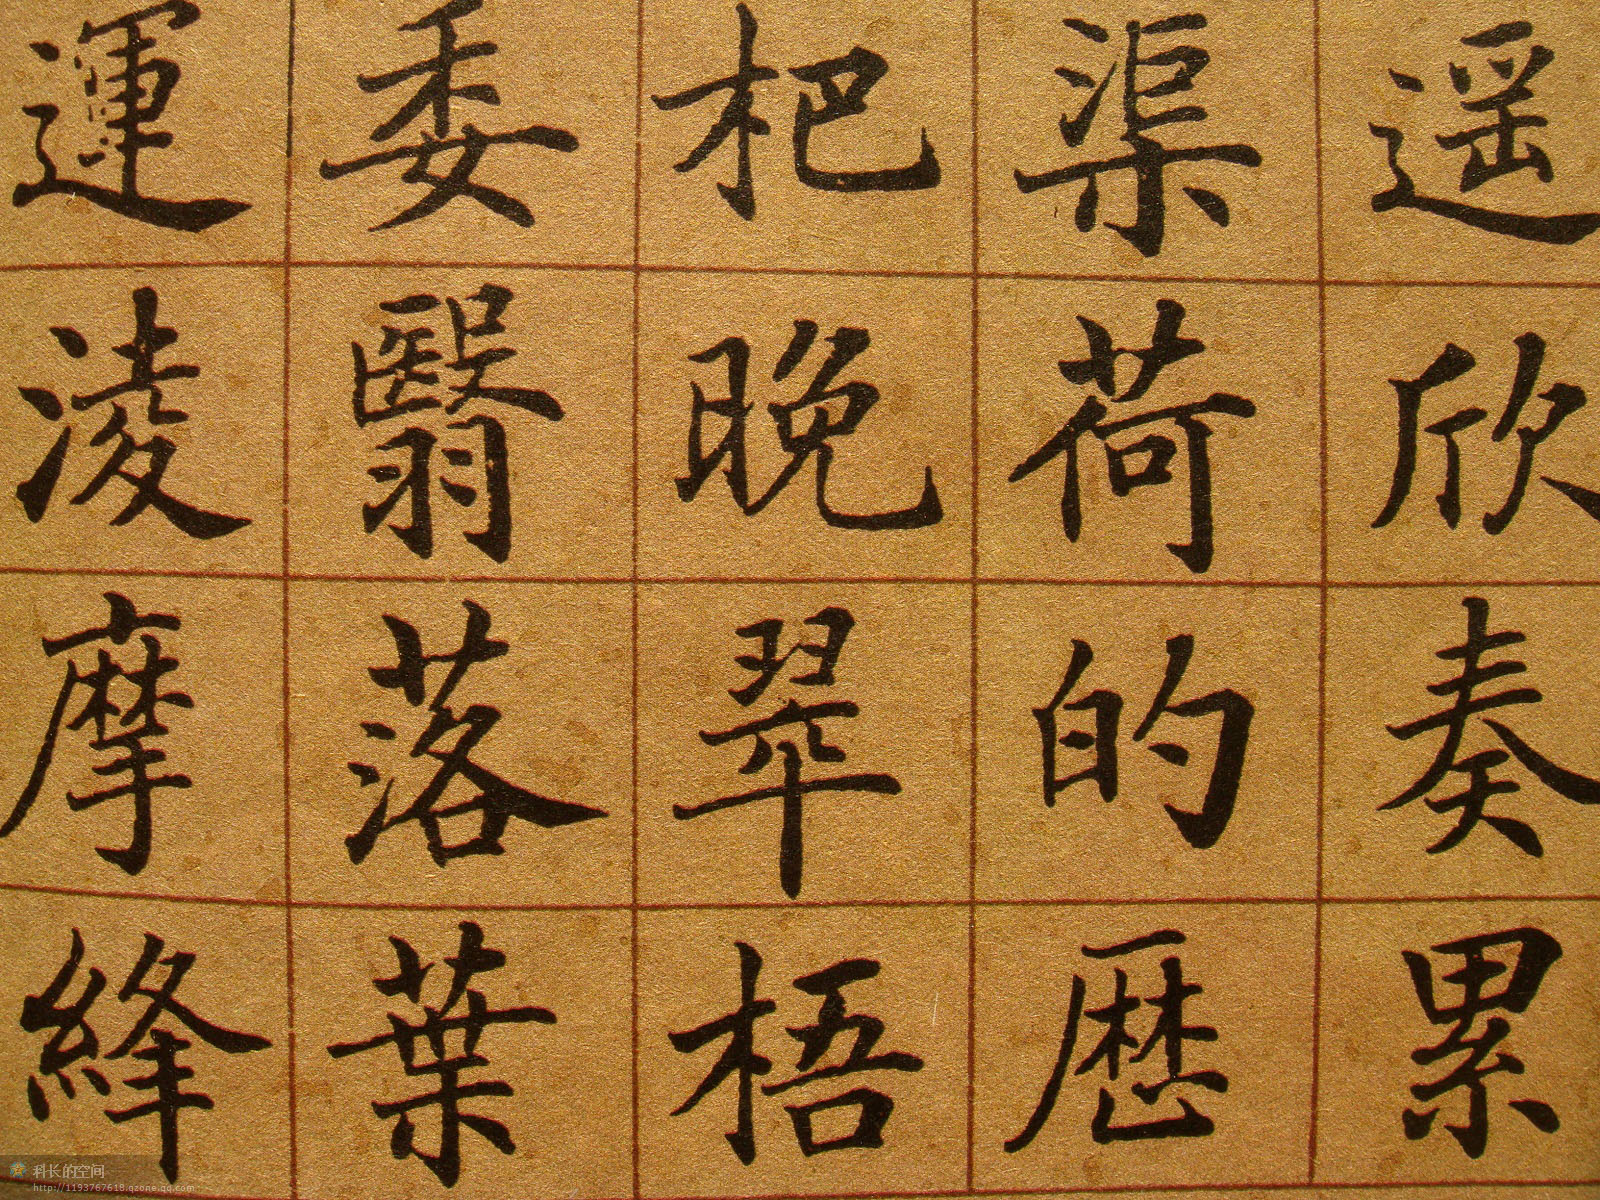 遥欣奏累
渠荷的歴
杷晚翠梧
委翳落葉
運淩摩絳
科长的空间
http://1193767618.qzone.qq.com